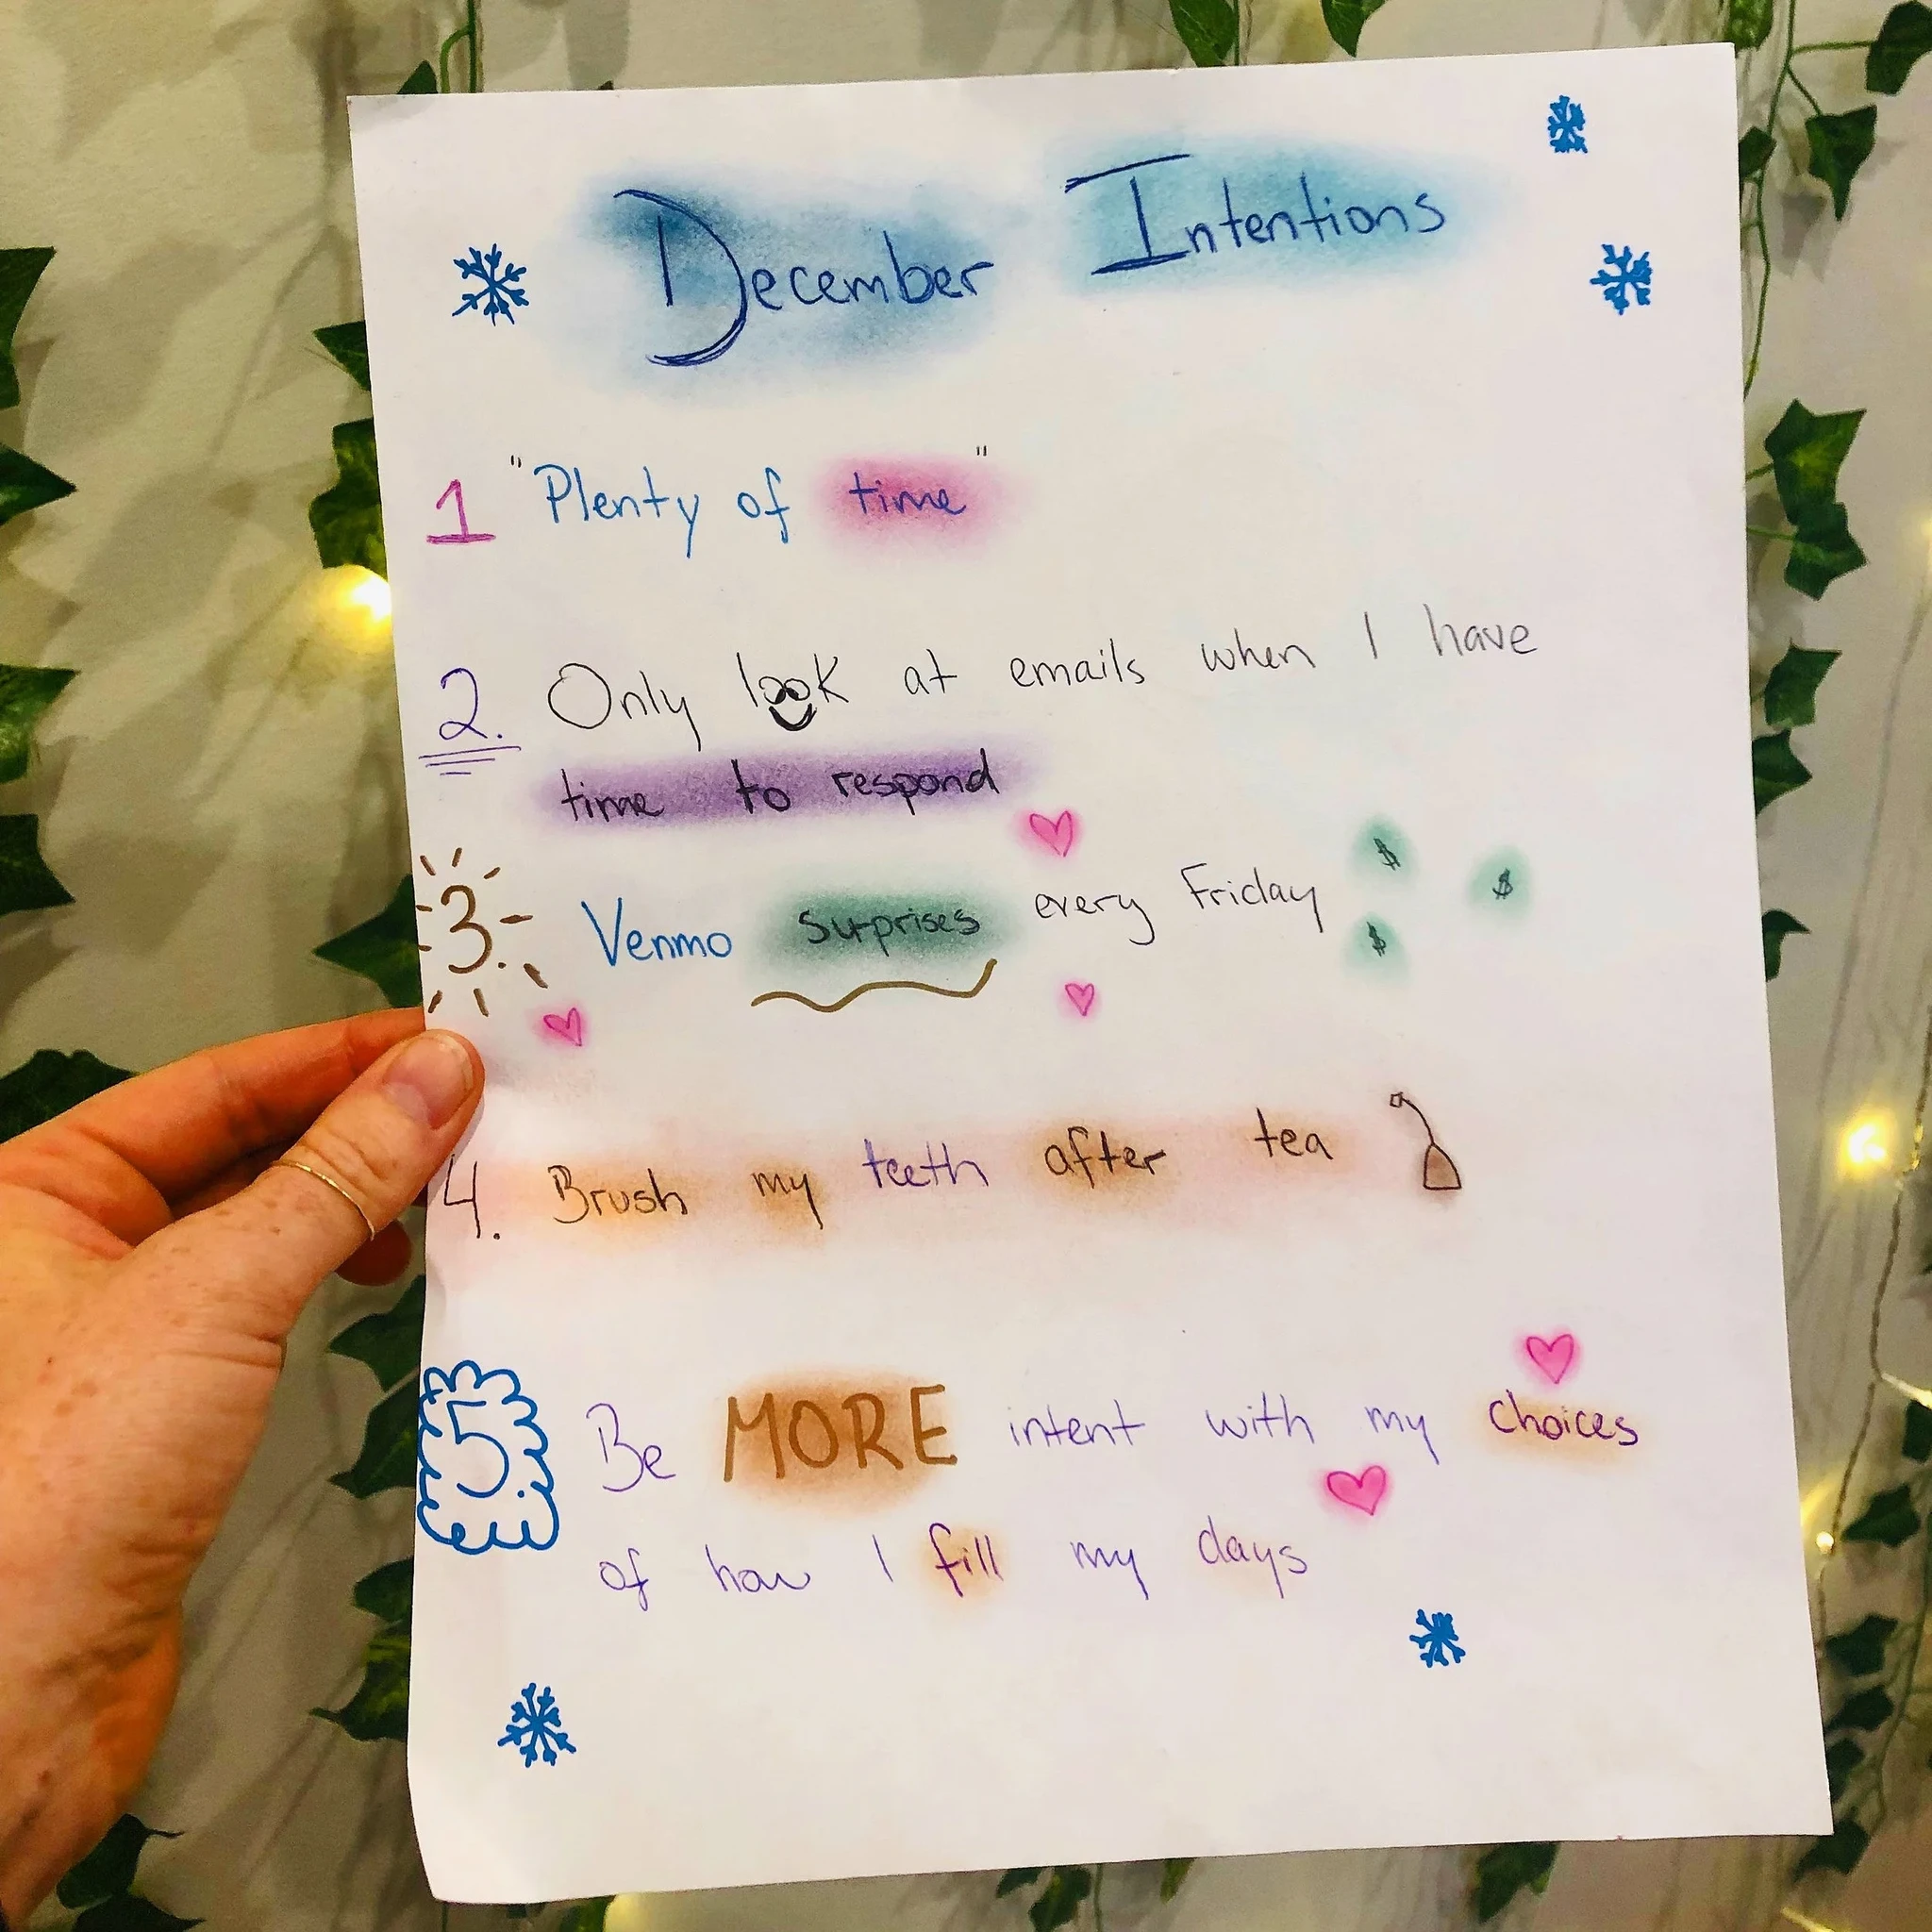 December Intentions
1 "Plenty of time"
2. Only look at emails when I have
time to respond
3. Venmo surprises every Friday $ $ $
4. Brush my teeth after tea
5. Be MORE intent with my choices
of how I fill my days